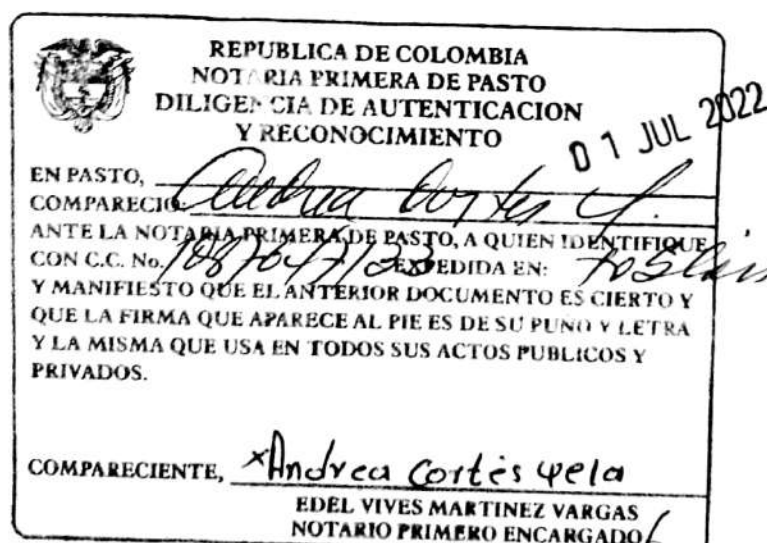 REPUBLICA DE COLOMBIA
NOTARIA PRIMERA DE PASTO
DILIGENCIA DE AUTENTICACION
Y RECONOCIMIENTO
01 JUL 2022
EN PASTO,
COMPARECIO: Andrea Cortes Y.
ANTE LA NOTARIA PRIMERA DE PASTO, A QUIEN IDENTIFIQUE
CON C.C. No. EXPEDIDA EN:
Y MANIFIESTO QUE EL ANTERIOR DOCUMENTO ES CIERTO Y
QUE LA FIRMA QUE APARECE AL PIE ES DE SU PUÑO Y LETRA
Y LA MISMA QUE USA EN TODOS SUS ACTOS PUBLICOS Y
PRIVADOS.
COMPARECIENTE, xAndrea Cortés yela
EDEL VIVES MARTINEZ VARGAS
NOTARIO PRIMERO ENCARGADO